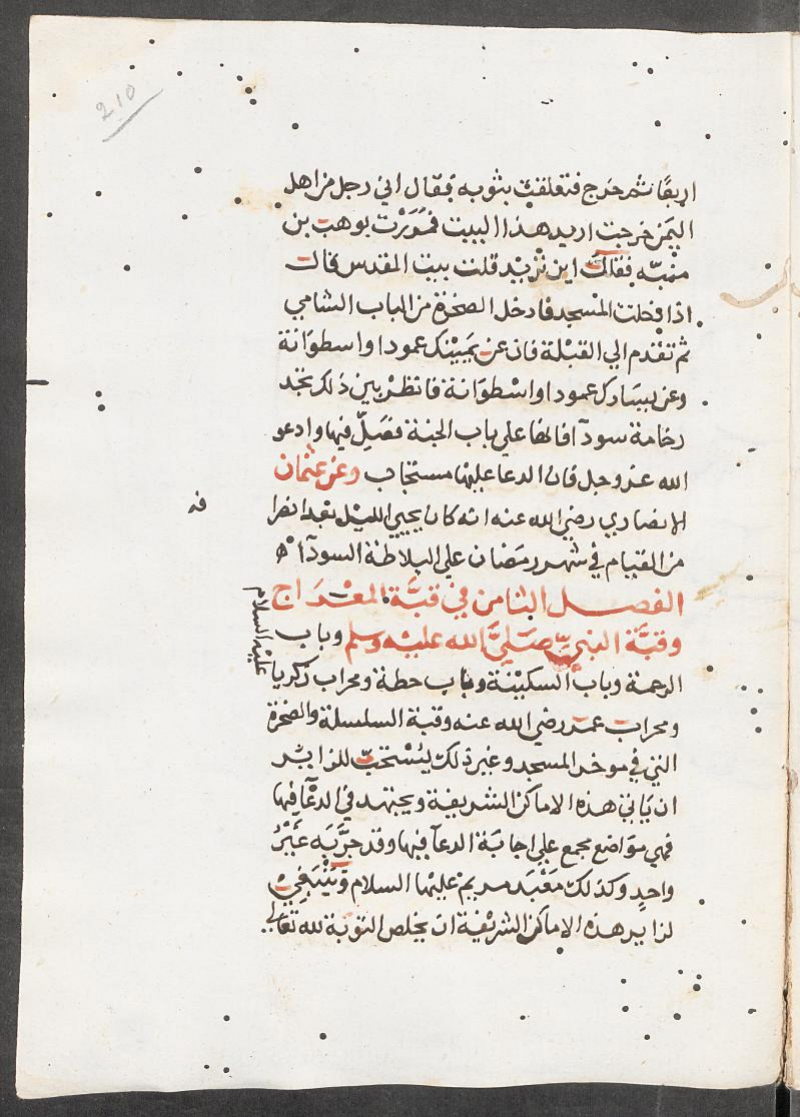 210
اربعًا ثم خرج فتعلقت بثوبه فقال اني رجل من اهل
اليمن خرجت اريد هذا البيت فمررت بوهب بن
منبّه فقال اين تريد قلت بيت المقدس فقالت
اذا دخلت المسجد فادخل الصخرة من الباب الشامي
ثم تقدم الي القبلة فان عن يمينك عمودا واسطوانة
وعن يسارك عمودا واسطوانة فانظر بين ذلك تجد
رخامة سودآ فانها علي باب الجنة فصَلِّ فيها وادعو
الله عز وجل فان الدعا عليها مستجاب وعن عثمان
الانصاري رضي الله عنه انه كان يحيي الليل بعد انصرا
فه
من القيام في شهر رمضان علي البلاطة السودآ اهـ
الفصل الثامن في قبّة المعراج
وقبّة النبيّ صَلَّيَ الله عليه وسلم وباب
الرحمة وباب السكينة وباب حطة ومحراب زكريا
عليه السلام
ومحراب عمر رضي الله عنه وقبة السلسلة والصخرة
التي في موخر المسجد وغير ذلك يُسْتحبّ للزاير
ان ياتي هذه الاماكن الشريفة ويجتهد في الدعآ فيها
فهي مواضع مجمع علي اجابة الدعآ فيها وقد جرَّبَه غَيْرُ
واحدٍ وكذلك مَعْبَد مريم عليها السلام وَيَنْبَغِيْ
لزاير هذه الاماكن الشريفة ان يخلص التوبة لله تعالي